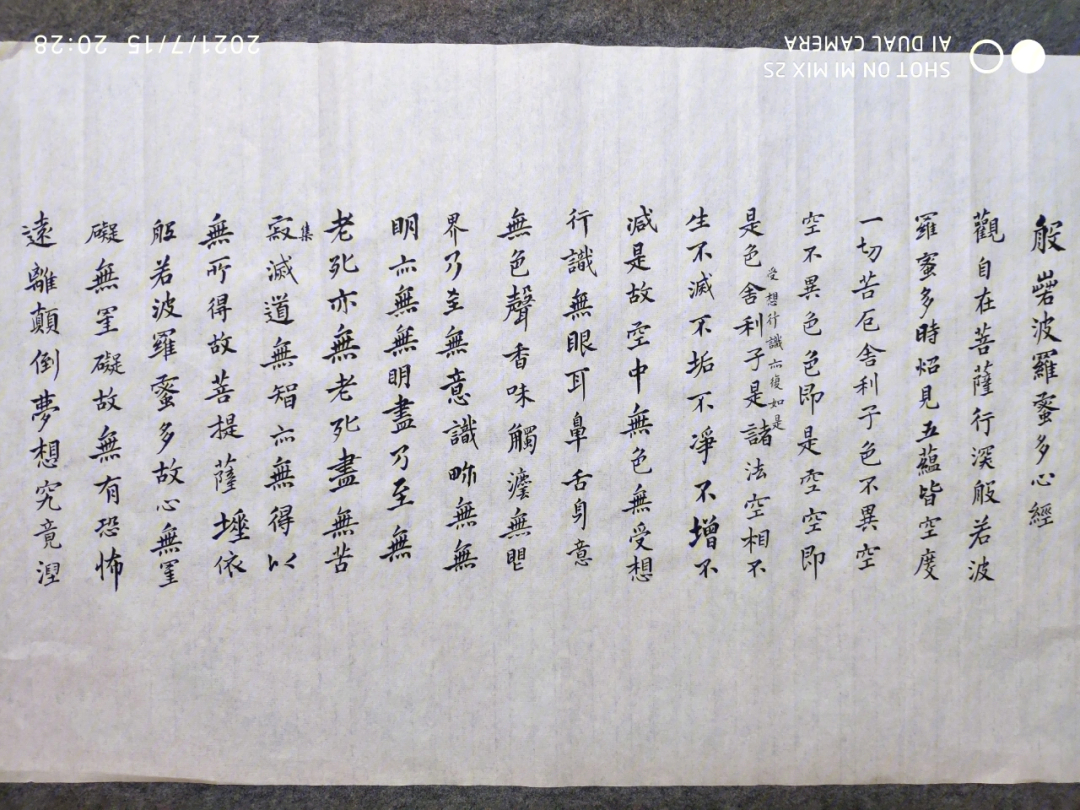 般若波羅蜜多心經
觀自在菩薩行深般若波
羅蜜多時炤見五蘊皆空度
一切苦厄舍利子色不異空
空不異色色即是空空即
受想行識亦復如是
是色舍利子是諸法空相不
生不滅不垢不淨不增不
減是故空中無色無受想
行識無眼耳鼻舌身意
無色聲香味觸法無眼
界乃至無意識界無無
明亦無無明盡乃至無
老死亦無老死盡無苦
集
寂滅道無智亦無得以
無所得故菩提薩埵依
般若波羅蜜多故心無罣
礙無罣礙故無有恐怖
遠離顛倒夢想究竟涅
SHOT ON MI MIX 2S
AI DUAL CAMERA
2021/7/15 20:28